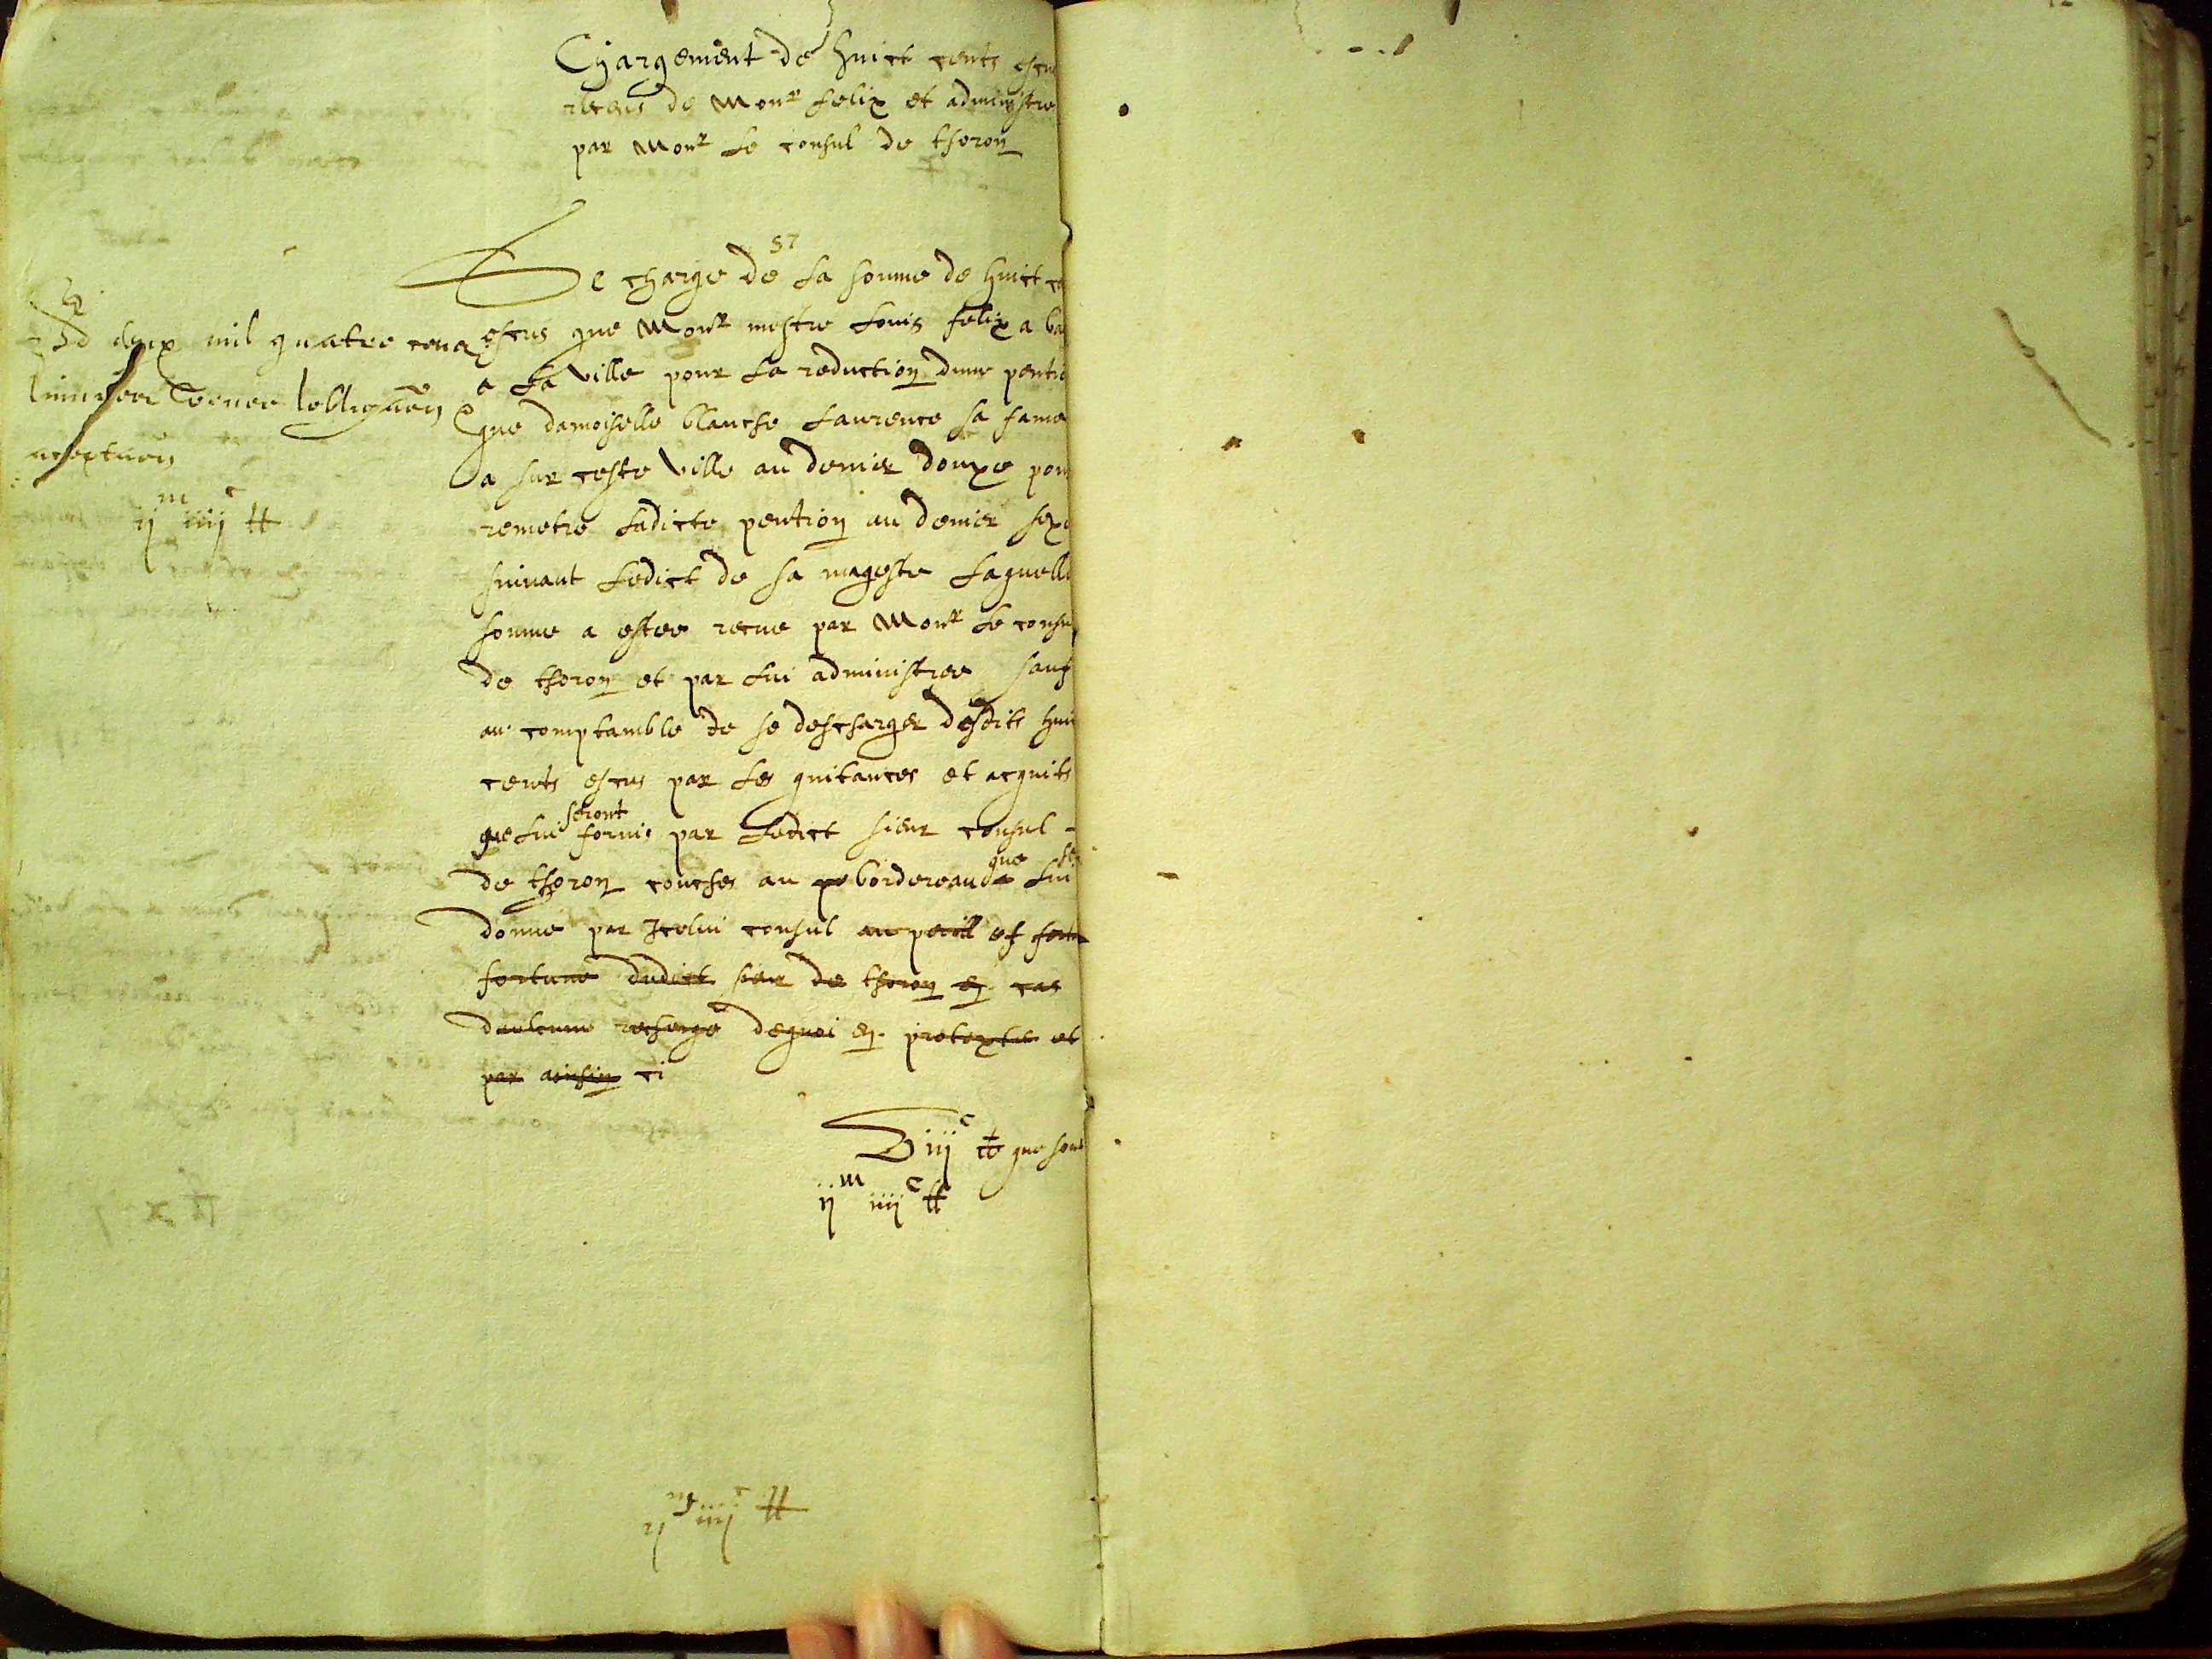 Chargement de huict cents escu
receus de Monr felix et administre
par Monr le consul de thoron
57
Se charge de la somme de huict ce
escus que Monr mestre Louis felix a ba
a la ville pour la reduction dune pentio
que damoiselle blanche Laurence sa fame
a sur ceste ville au denier douxe pour
remetre ladicte pention au denier sexe
suivant ledict de sa mageste laquelle
somme a estee receue par Monr le consul
de thoron et par lui administree sauf
au comptamble de se descharger desdits hui
cents escus par les quitances et acquits
seront
que lui fornis par ledict sieur consul
que se
de thoron couches au bordereau lui
donné par Icelui consul au perill et
fortune dudict sieur de thoron en cas
daulcune recharge dequoi en proteste et
par ainsin ci
viijc que sont
ijm iiijc tt
deux mil quatre cens
ijm iiijc tt
ijm iiijc tt